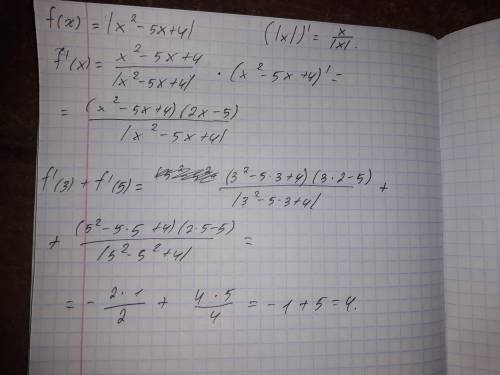 f(x) = |x² - 5x + 4|      (|x|)' = x/|x|.
f'(x) = (x² - 5x + 4)/|x² - 5x + 4| · (x² - 5x + 4)' =
= (x² - 5x + 4)(2x - 5)/|x² - 5x + 4|
f'(3) + f'(5) = (3² - 5·3 + 4)(3·2 - 5)/|3² - 5·3 + 4| +
+ (5² - 5·5 + 4)(2·5 - 5)/|5² - 5² + 4| =
= - 2·1/2 + 4·5/4 = -1 + 5 = 4.